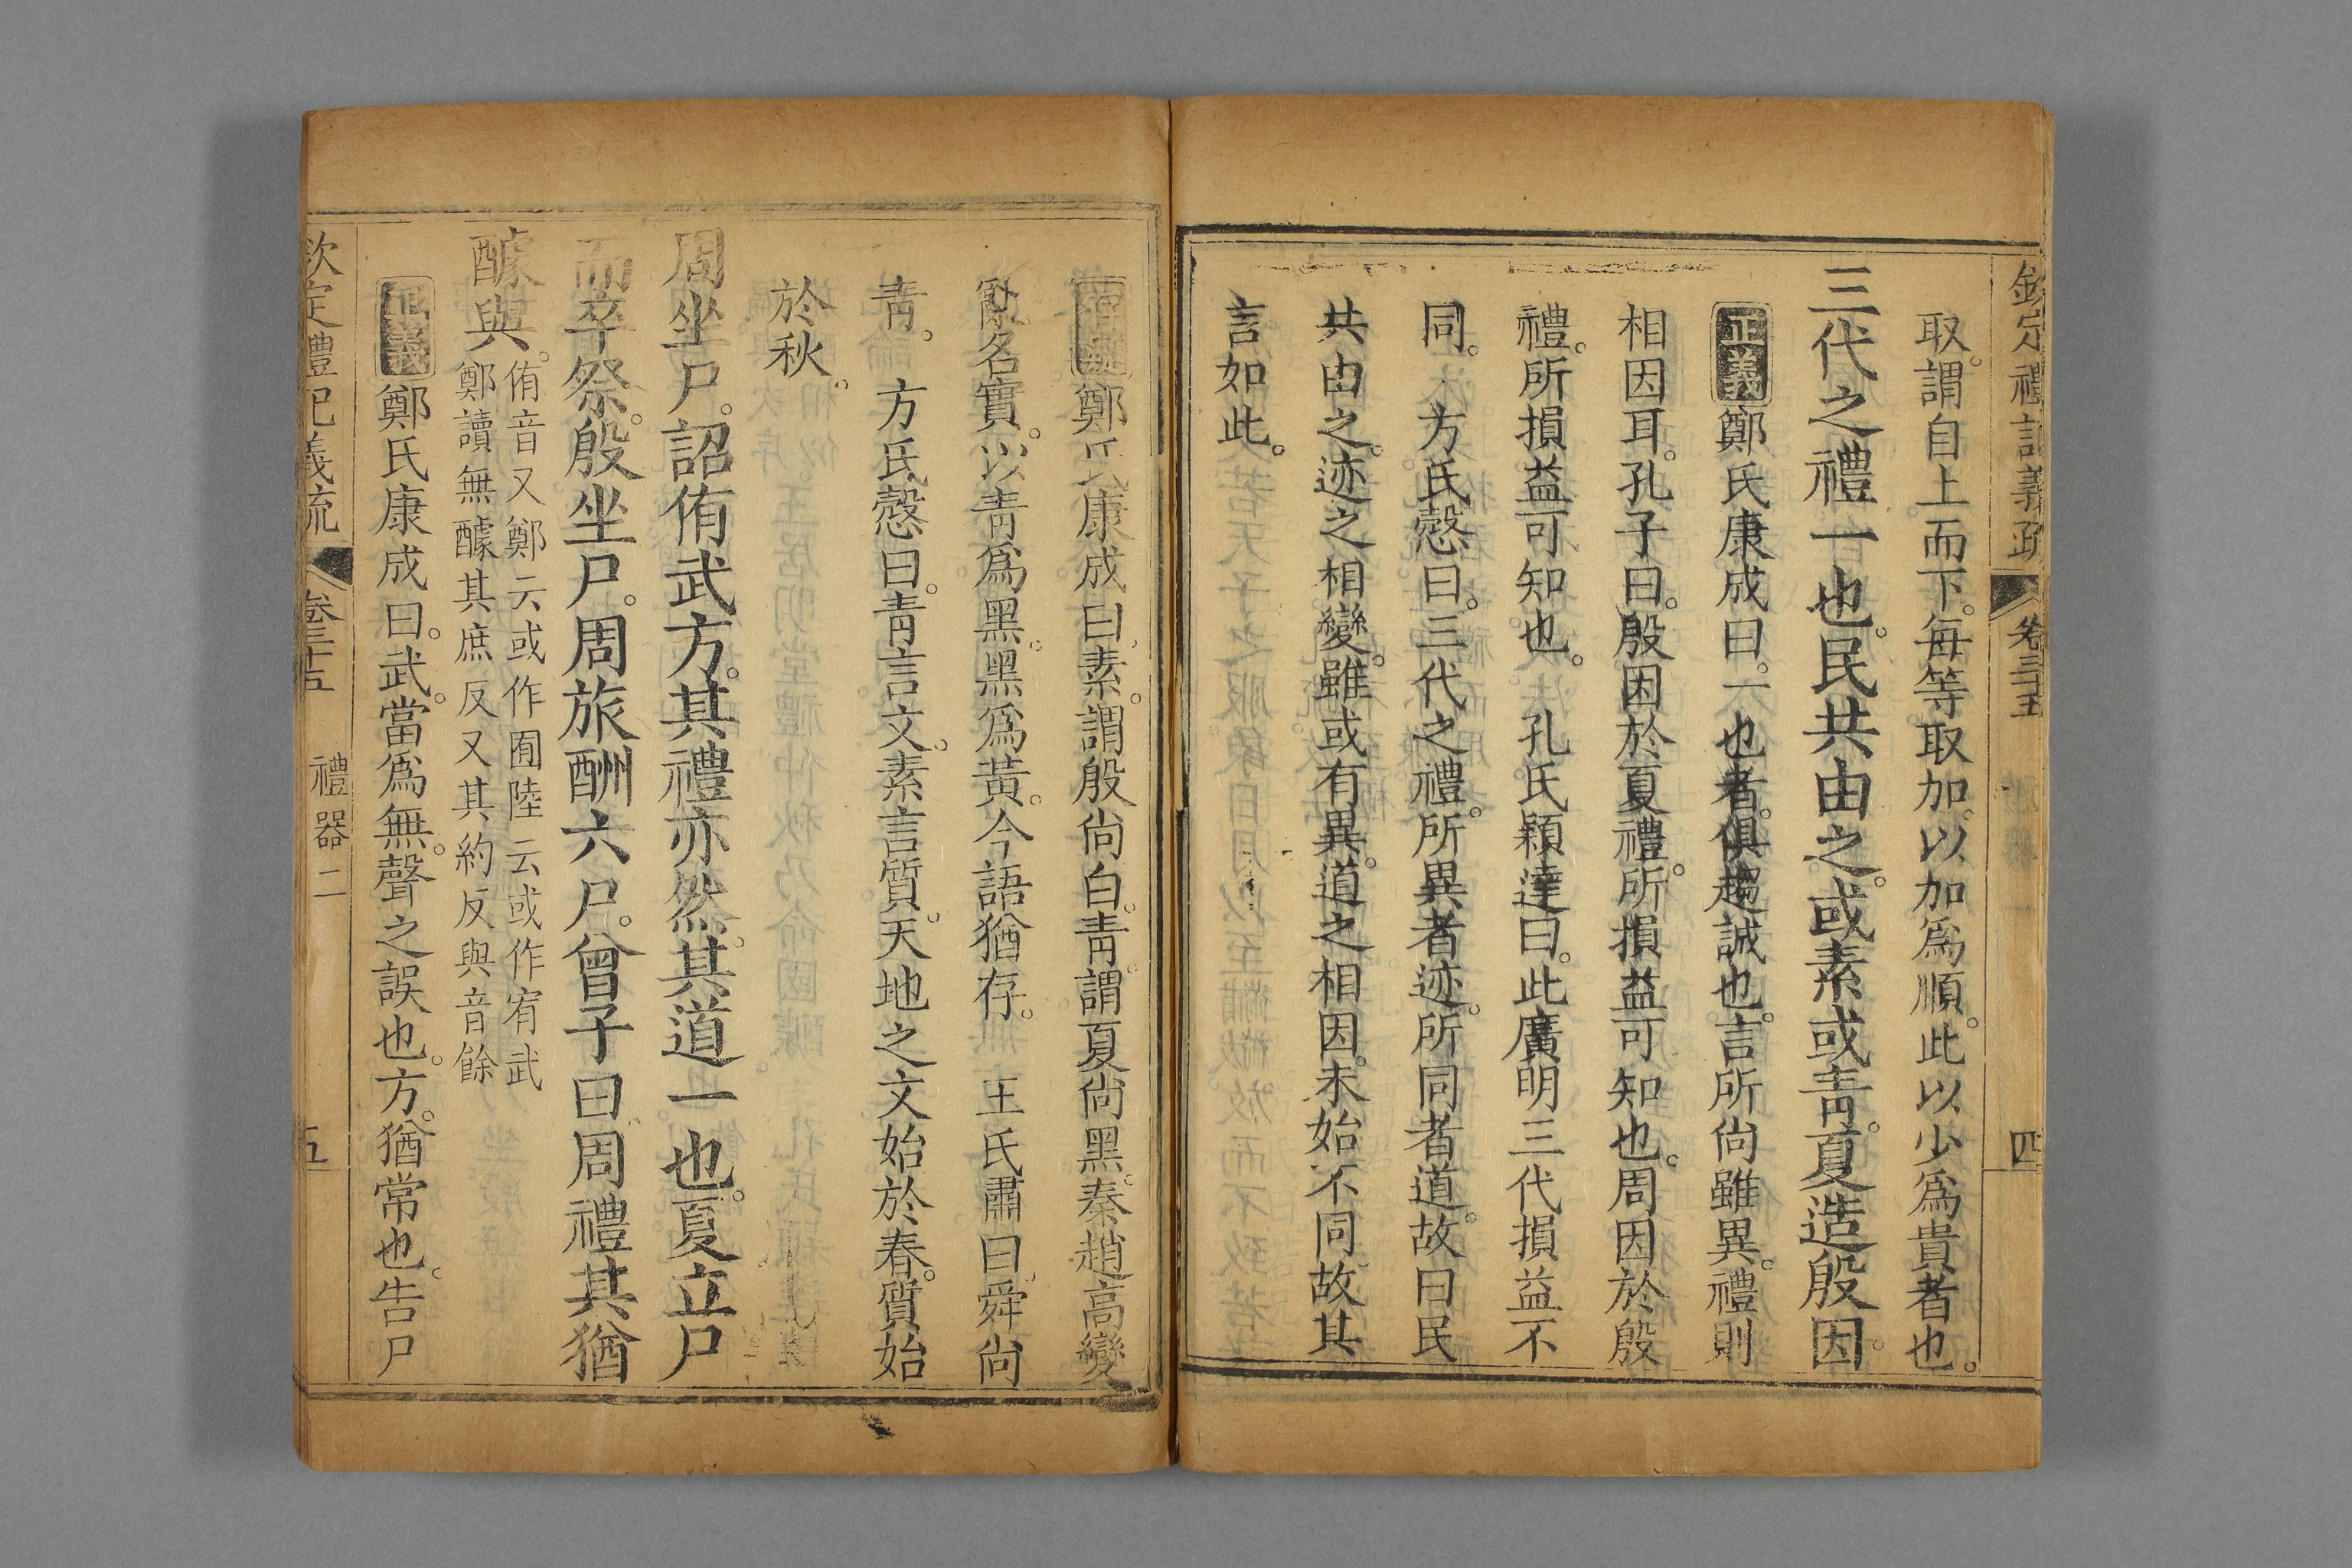 欽定禮記義疏 卷三十五 四
取。謂自上而下。每等取加。以加爲順。此以少爲貴者也。
三代之禮一也。民共由之。或素或靑。夏造殷因。
正義 鄭氏康成曰。一也者。俱趨誠也。言所尙雖異。禮則
相因耳。孔子曰。殷因於夏禮。所損益可知也。周因於殷
禮。所損益可知也。 孔氏穎達曰。此廣明三代損益不
同。 方氏慤曰。三代之禮。所異者迹。所同者道。故曰民
共由之。迹之相變。雖或有異。道之相因。未始不同。故其
言如此。
鄭氏康成曰。素。謂殷尙白。靑。謂夏尙黑。秦趙高變
亂名實。以靑爲黑。黑爲黃。今語猶存。 王氏肅曰。舜尙
靑。 方氏慤曰。靑言文。素言質。天地之文始於春。質始
於秋。
周坐尸。詔侑武方。其禮亦然。其道一也。夏立尸
而卒祭。殷坐尸。周旅酬六尸。曾子曰周禮其猶
醵與。
侑音又鄭云或作囿陸云或作宥武
鄭讀無醵其庶反又其約反與音餘
正義 鄭氏康成曰。武。當爲無。聲之誤也。方。猶常也。告尸
欽定禮記義疏 卷三十五 禮器二 五